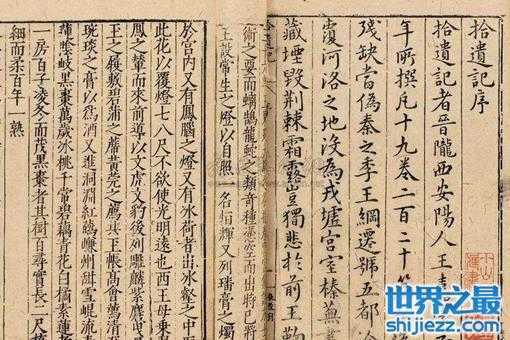 拾遺記序
拾遺記者晉隴西安陽人王
年所撰凡十九卷二百二十
殘缺當偽秦之季王綱遷號五都
覆河洛之地沒為戎墟宮室榛蕪
藏堙毀荊棘霜露豈獨悲於前王
術之要而龍蛇之類奇種憑空而出將已將
王設常生之燈以自照一名恒輝又列璠膏之燭
於宮內又有鳳腦之燈又有冰荷者出冰壑之中取
此花以覆燈七八尺不欲使光明遠也西王母乘
鳳之輦而來前導以文虎文豹後列雕麟紫
王之履敷碧蒲之黃莞之薦共玉帳高會薦清
琬琰之膏以為酒又進洞淵紅嵊州甜雪崐流素
岐黑棗萬歲冰桃千常碧藕青花白橘素蓮
一房百子凌冬而茂黑棗者其樹百尋實長二尺核
細而柔百年一熟
世界之最
shijiezui.com